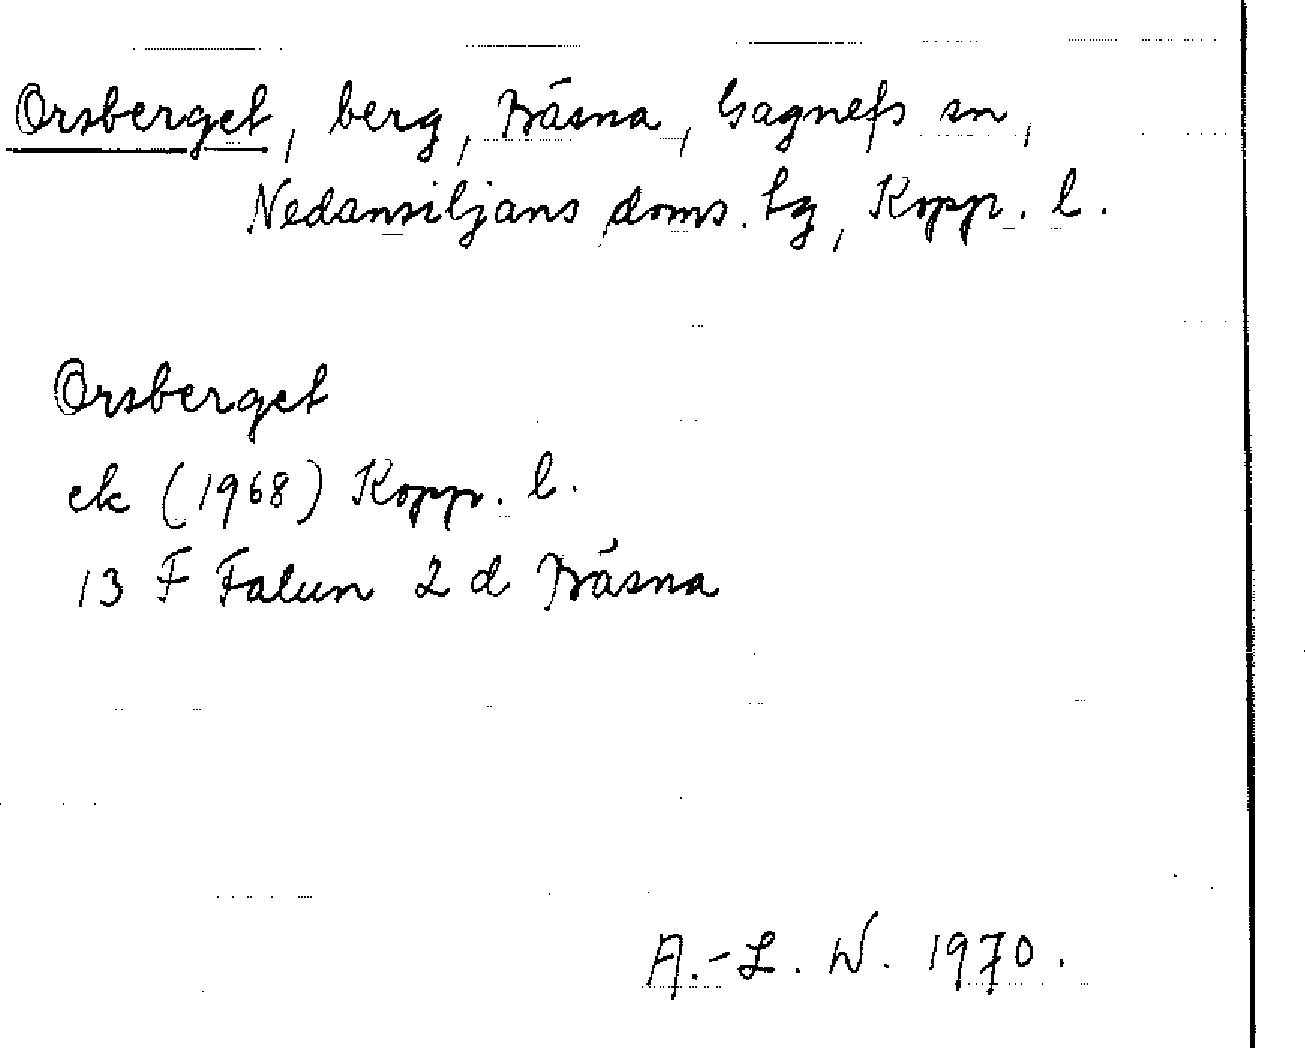 Orsberget, berg, Bäsna, Gagnefs sn,
Nedansiljans doms. tg, Kopp. l.
Orsberget
ek (1968) Kopp. l.
13 F Falun 2 d Bäsna
A.-L. W. 1970.